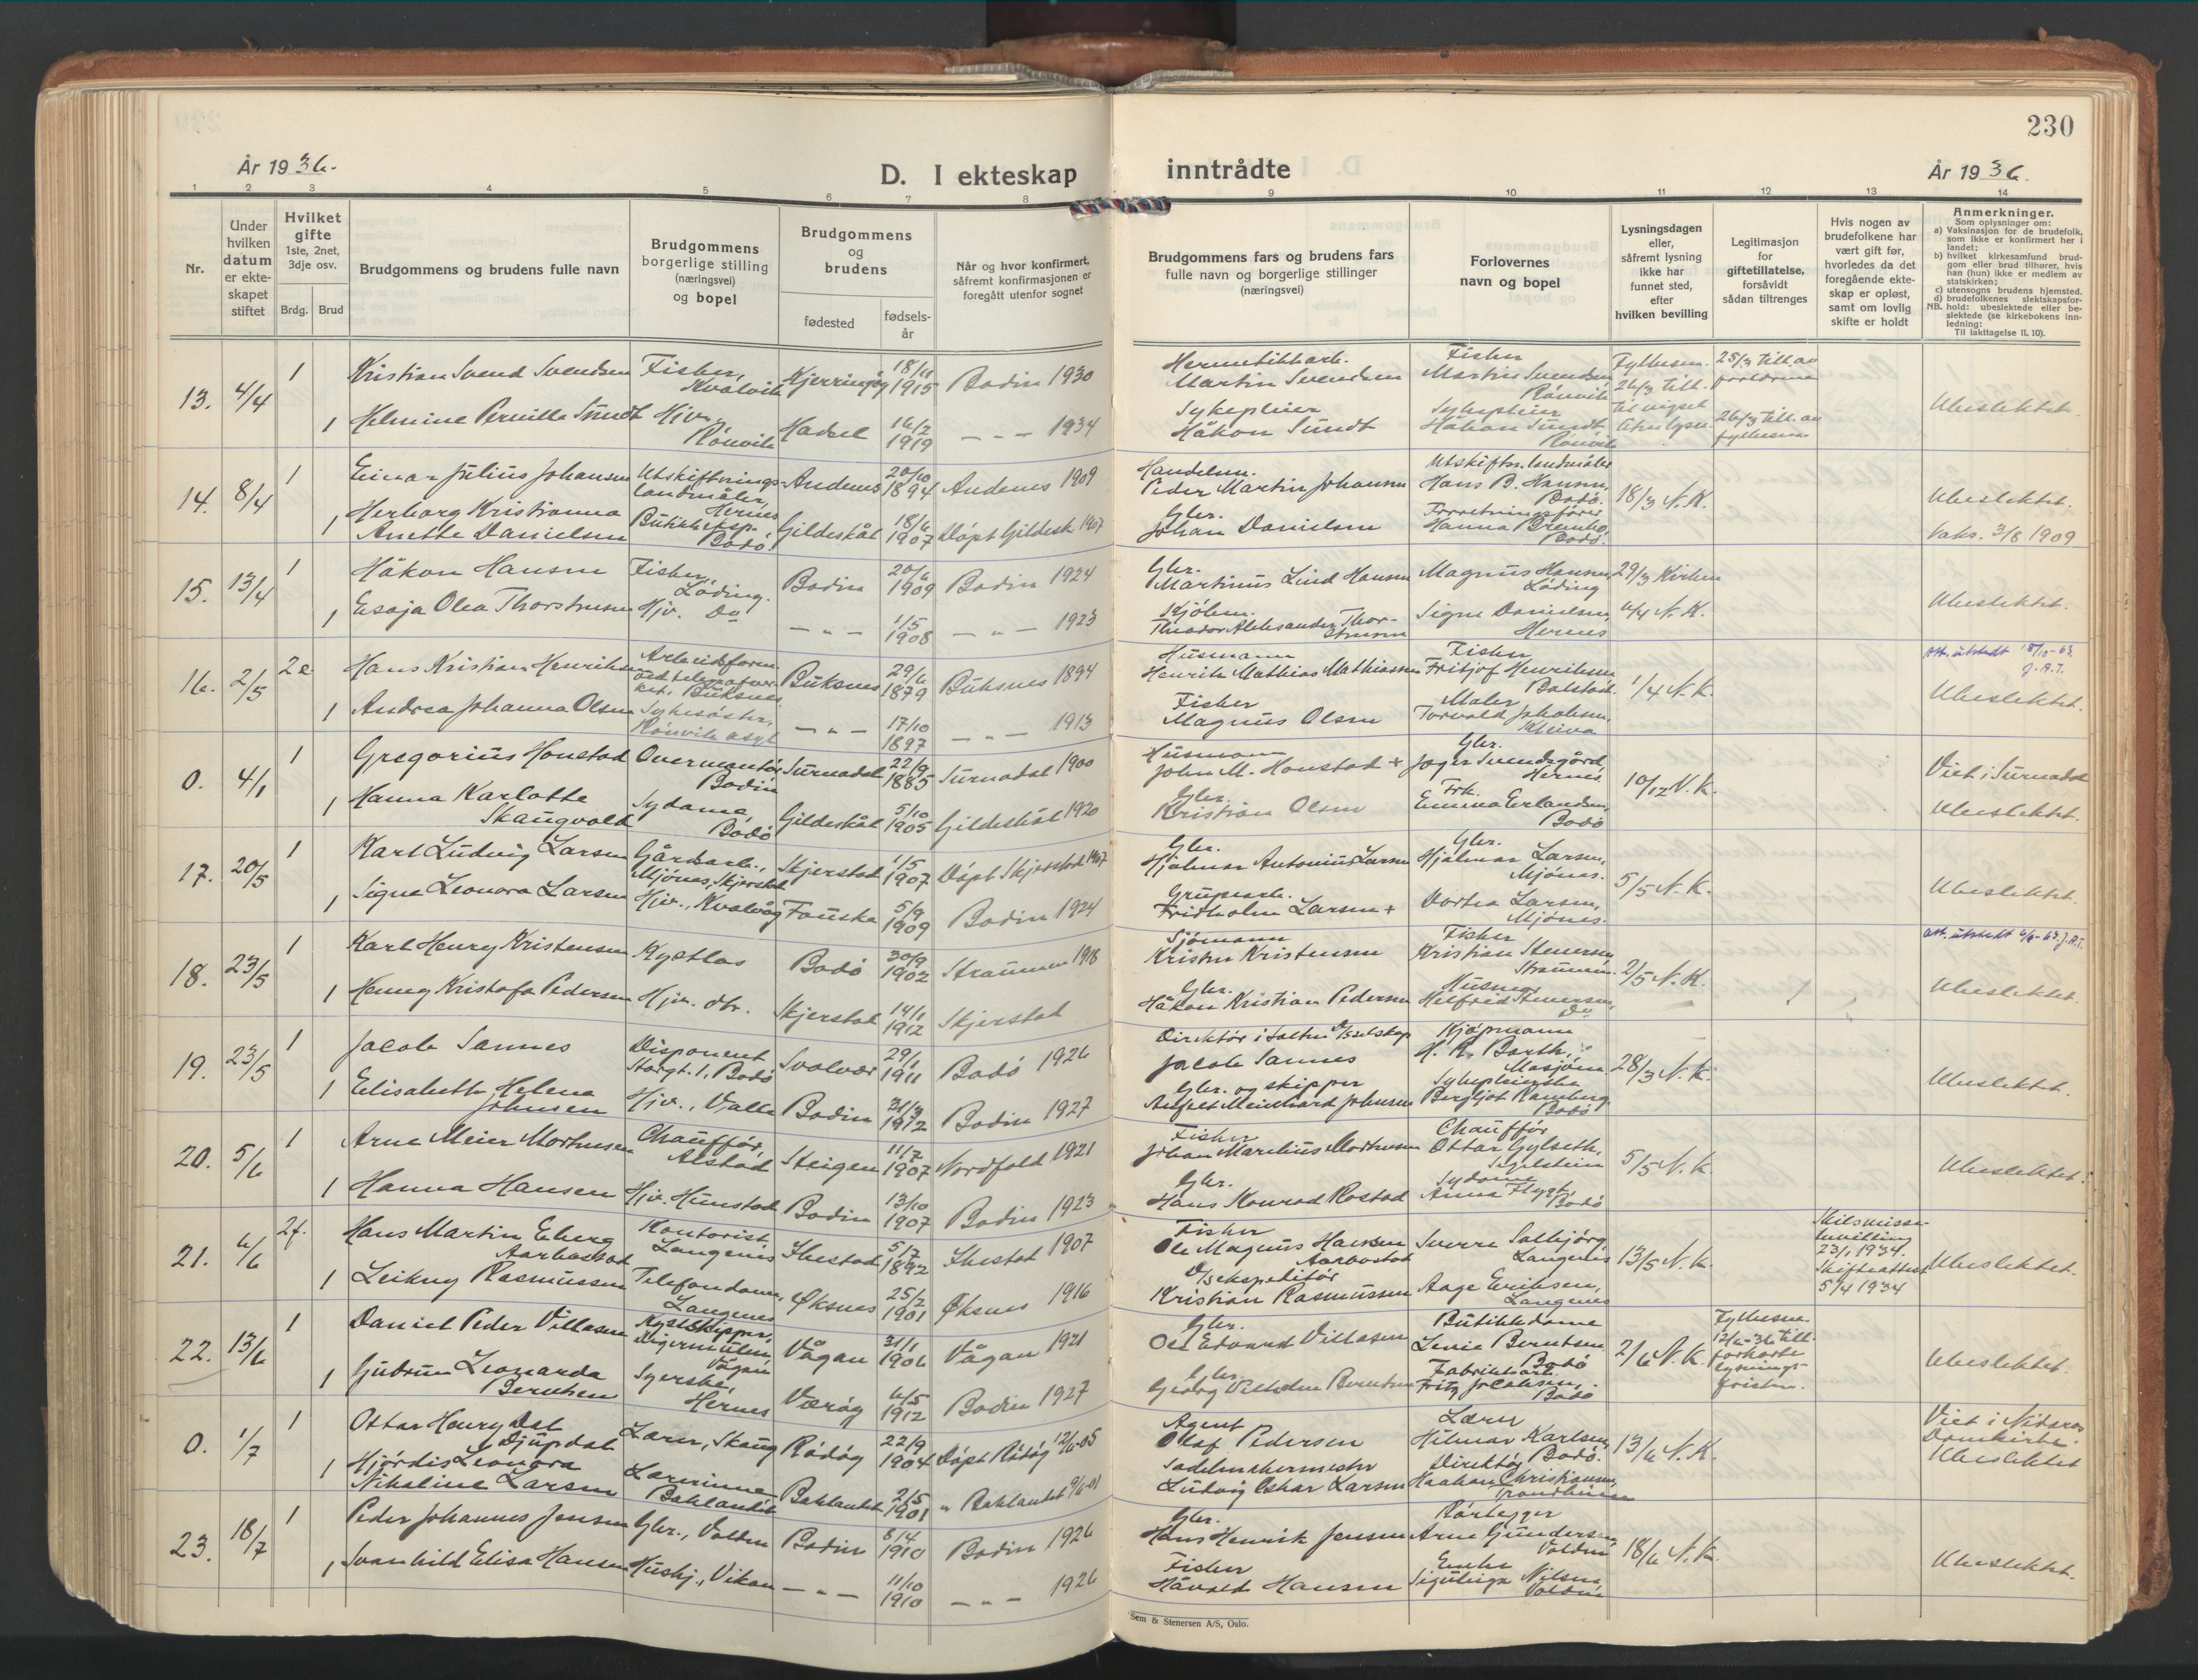 230
År 1936.
D. I ekteskap inntrådte
År 1936.
1 2 3 4 5 6 7 8 9 10 11 12 13 14
Nr.
Under hvilken datum er ekteskapet stiftet
Hvilket gifte 1ste, 2net, 3dje osv.
Brdg. Brud
Brudgommens og brudens fulle navn
Brudgommens borgerlige stilling (næringsvei) og bopel
Brudgommens og brudens
fødested
fødselsår
Når og hvor konfirmert, såfremt konfirmasjonen er foregått utenfor sognet
Brudgommens fars og brudens fars fulle navn og borgerlige stillinger (næringsvei)
Forlovernes navn og bopel
Lysningsdagen eller, såfremt lysning ikke har funnet sted, efter hvilken bevilling
Legitimasjon for giftetillatelse, forsåvidt sådan tiltrenges
Hvis nogen av brudefolkene har vært gift før, hvorledes da det foregående ekteskap er opløst, samt om lovlig skifte er holdt
Anmerkninger.
Som oplysninger om:
a) Vaksinasjon for de brudefolk, som ikke er konfirmert her i landet;
b) hvilket kirkesamfund brudgom eller brud tilhører, hvis han (hun) ikke er medlem av statskirken;
c) utensogns brudens hjemsted.
d) brudefolkenes slektskapsforhold: ubeslektede eller beslektede (se kirkebokens innledning:
NB. Til iakttagelse II. 10).
13. 4/4 1 Kristian Svend Svendsen Fisker, Kvalvik Kjerringøy 18/11 1915 Bodin 1930 Hermetikkarb. Martin Svendsen Fisker Martin Svendsen Rønvik Fylkesm. 26/3 till. til vigsel uten lysn. 25/3 till. av foreldrene Ubeslektet.
1 Helmine Pernille Sundt Hjv. Rønvik Hadsel 16/2 1919 — " — 1934 Sykepleier Håkon Sundt Sykepleier Håkon Sundt Rønvik 26/3 till. av fylkesm.
14. 8/4 1 Einar Julius Johansen Utskiftningslandmåler, Hernes Andenes 20/10 1894 Andenes 1909 Handelsm. Peder Martin Johansen Utskiftn. landmåler Hans B. Hansen, Bodø. 18/3 N.K. Ubeslektet.
1 Herborg Kristianna Anette Danielsen Butikkeksp. Bodø Gildeskål 18/6 1907 Døpt Gildesk 1907 Gbr. Johan Danielsen Forretningsfører Hanna Brembo, Bodø. Vaks. 3/8 1909
15. 13/4 1 Håkon Hansen Fisker, Løding. Bodin 20/6 1909 Bodin 1924 Gbr. Martinus Lind Hansen Magnus Hansen, Løding 29/3 Kirken Ubeslektet.
1 Esaja Olea Thorstensen Hjv. Do — " — 1/5 1908 — " — 1923 Theodor Aleksander Thorstensen Signe Danielsen, Hernes 6/4 N.K.
16. 2/5 2e Hans Kristian Henriksen Arbeidsform. ved telegrafverket, Buksnes Buksnes 29/6 1879 Buksnes 1894 Husmann Henrik Mathias Mathiassen Fisker Fritjof Henriksen Balstad. 1/4 N.K. Att. utstedt 15/10-63. J.A.T. Ubeslektet.
1 Andrea Johanna Olsen Sykesøster, Rønvik asyl — " — 17/10 1897 — " — 1913 Fisker Magnus Olsen Maler Torvald Jakobsen, Kleiva
0. 4/1 1 Gregorius Honstad Overmontør Bodin Surnadal 22/9 1885 Surnadal 1900 Husmann John M. Honstad + Gbr. Joger Svendsgård, Hernes 10/12 N.K. Viet i Surnadal
1 Hanna Karlotte Skaugvold Sydame, Bodø Gildeskål 5/10 1905 Gildeskål 1920 Gbr. Kristian Olsen Frk. Emma Erlandsen, Bodø Ubeslektet.
17. 20/5 1 Karl Ludvig Larsen Gårdsarb., Mjønes, Skjerstad Skjerstad 1/5 1907 Døpt Skjerstad 1907 Gbr. Hjalmar Antonius Larsen Gbr. Hjalmar Larsen, Mjønes. 5/5 N.K. Ubeslektet.
1 Signe Leonora Larsen Hjv., Kvalvåg Fauske 5/9 1909 Bodin 1924 Grubearb. Fridholm Larsen + Dortea Larsen, Mjønes.
18. 23/5 1 Karl Henry Kristensen Kystlos Bodø 30/9 1902 Straumen 1918 Sjømann Krister Kristensen Fisker Kristian Stenersen, Straumen. 2/5 N.K. Att. utstedt 4/9-63. J.A.T.
1 Henny Kristofa Pedersen Hjv. dtr. Skjerstad 14/1 1912 Skjerstad Gbr. Håkon Kristian Pedersen Husmor Helfrid Stenersen, Do Ubeslektet.
19. 23/5 1 Jacob Sannes Disponent Storgt. 1, Bodø Svolvær 29/1 1911 Bodø 1926 Direktør i Salten D/Sselskap Jacob Sannes Kjøpmann H. R. Barth, Mosjøen 28/3 N.K. Ubeslektet.
1 Elisabeth Helena Johnsen Hjv., Valle Bodin 31/3 1912 Bodin 1927 Gbr. og skipper Anfelt Meinhard Johnsen Sykepleierske Bergljot Ramberg. Bodø
20. 5/6 1 Arne Meier Mortensen Chauffør, Alstad Steigen 11/7 1907 Nordfold 1921 Fisker Johan Marelius Mortensen Chauffør Ottar Gylseth, 5/5 N.K. Ubeslektet.
1 Hanna Hansen Hjv. Hunstad Bodin 13/10 1907 Bodin 1923 Gbr. Hans Konrad Rostad Sydame Anna Flygt, Bodø
21. 6/6 2f. Hans Martin Eberg Aarbostad Kontorist Langenes Ibestad 5/7 1892 Ibestad 1907 Fisker Ole Magnus Hansen Aarbostad Sverre Solbjørg Langenes 13/5 N.K. Skilsmissebevilling 23/1 1934. Skifteattest 5/4 1934 Ubeslektet.
1 Leikny Rasmussen Telefondame, Langenes Øksnes 25/2 1901 Øksnes 1916 D/Sekspeditør Kristian Rasmussen Aage Eriksen, Langenes
22. 13/6 1 Daniel Peder Villasen Kystskipper, Digermulen Vågan Vågan 31/1 1906 Vågan 1921 Gbr. Ole Edvard Villasen Butikkdame Lenie Berntsen Bodø 2/6 N.K. Fylkesm. 12/6-36 till. forkorte lysningsfristen. Ubeslektet.
1 Gudrun Leonarda Berntsen Syerske, Hernes Værøy 6/5 1912 Bodin 1927 Gbr. Georg Vilhelm Berntsen Fabrikkarb. Fritz Jacobsen, Bodø
0. 1/7 1 Ottar Henry Dal Djupdal Lærer, Skaug Rødøy 22/9 1904 Døpt Rødøy 12/6-05 Agent Olaf Pedersen Lærer Hilmar Karlsen, Bodø. 13/6 N.K. Viet i Nidaros Domkirke.
1 Hjørdis Leonora Nikoline Larsen Lærerinne Baklandet Baklandet 2/5 1901 " Baklandet 9/6-01 Sadelmakermester Ludvig Oskar Larsen Direktør Haakon Christiansen, Trondheim Ubeslektet
23. 18/7 1 Peder Johannes Jensen Gbr., Valden Bodin 8/4 1910 Bodin 1926 Gbr. Hans Henrik Jenssen Rørlegger Arne Gundersen, Valden 18/6 N.K. Ubeslektet.
1 Svanhild Elisa Hansen Hushj., Vikan — " — 11/10 1910 — " — 1926 Fisker Håvald Hansen Enke Nilsen Valden
Sem & Stenersen A/S, Oslo.